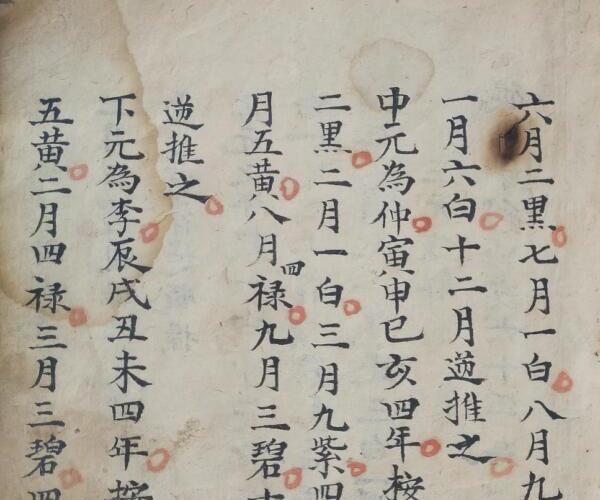 六月二黑七月一白八月九
一月六白十二月逆推之
中元為仲寅申巳亥四年按
二黑二月一白三月九紫四
月五黄八月四禄九月三碧
逆推之
下元為李辰戌丑未四年按
五黄二月四禄三月三碧四